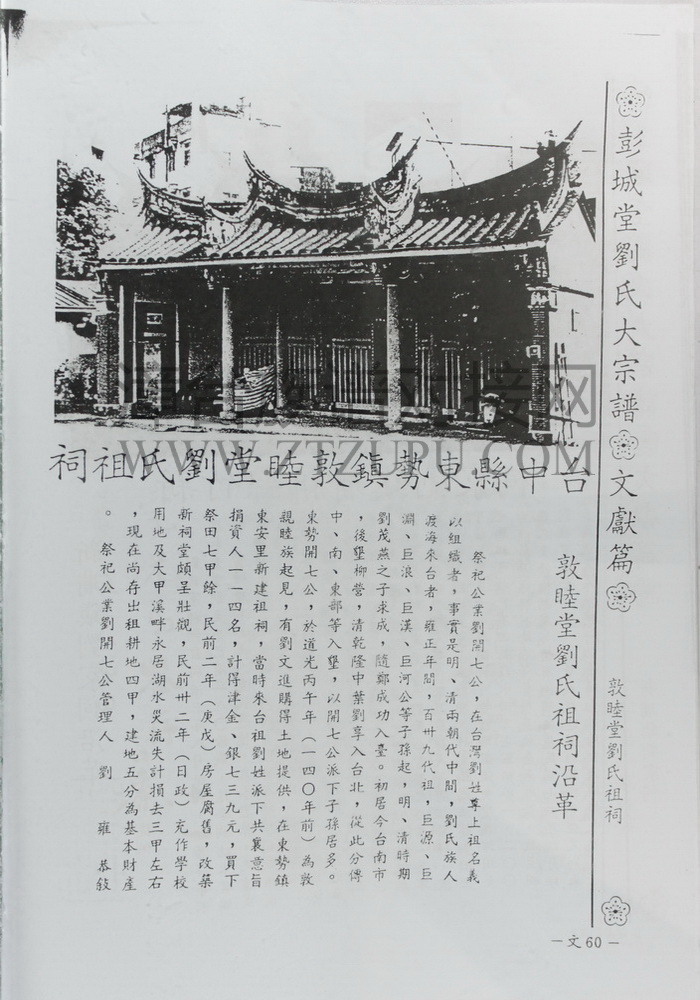 彭城堂劉氏大宗譜 文獻篇
敦睦堂劉氏祖祠
台中縣東勢鎮敦睦堂劉氏祖祠
敦睦堂劉氏祖祠沿革
祭祀公業劉開七公，在台灣劉姓尊上祖名義
以組織者，事實是明、清兩朝代中間，劉氏族人
渡海來台者，雍正年間，百卅九代祖，巨源、巨
淵、巨浪、巨漢、巨河公等子孫起，明、清時期
劉茂燕之子求成，隨鄭成功入臺。初居今台南市
，後墾柳營，清乾隆中葉劉享入台北，從此分傳
中、南、東部等入墾，以開七公派下子孫居多。
東勢開七公，於道光丙午年（一四〇年前）為敦
親睦族起見，有劉文進購得土地提供，在東勢鎮
東安里新建祖祠，當時來台祖劉姓派下共襄意旨
捐資人一一四名，計得津金、銀七三九元，買下
祭田七甲餘，民前二年（庚戌）房屋腐舊，改築
新祠堂頗呈壯觀，民前卅二年（日政）充作學校
用地及大甲溪畔永居湖水災流失計損去三甲左右
，現在尚存出租耕地四甲，建地五分為基本財產
。 祭祀公業劉開七公管理人 劉 雍 恭敍
－文60－
WWW.ZTZUPU.COM